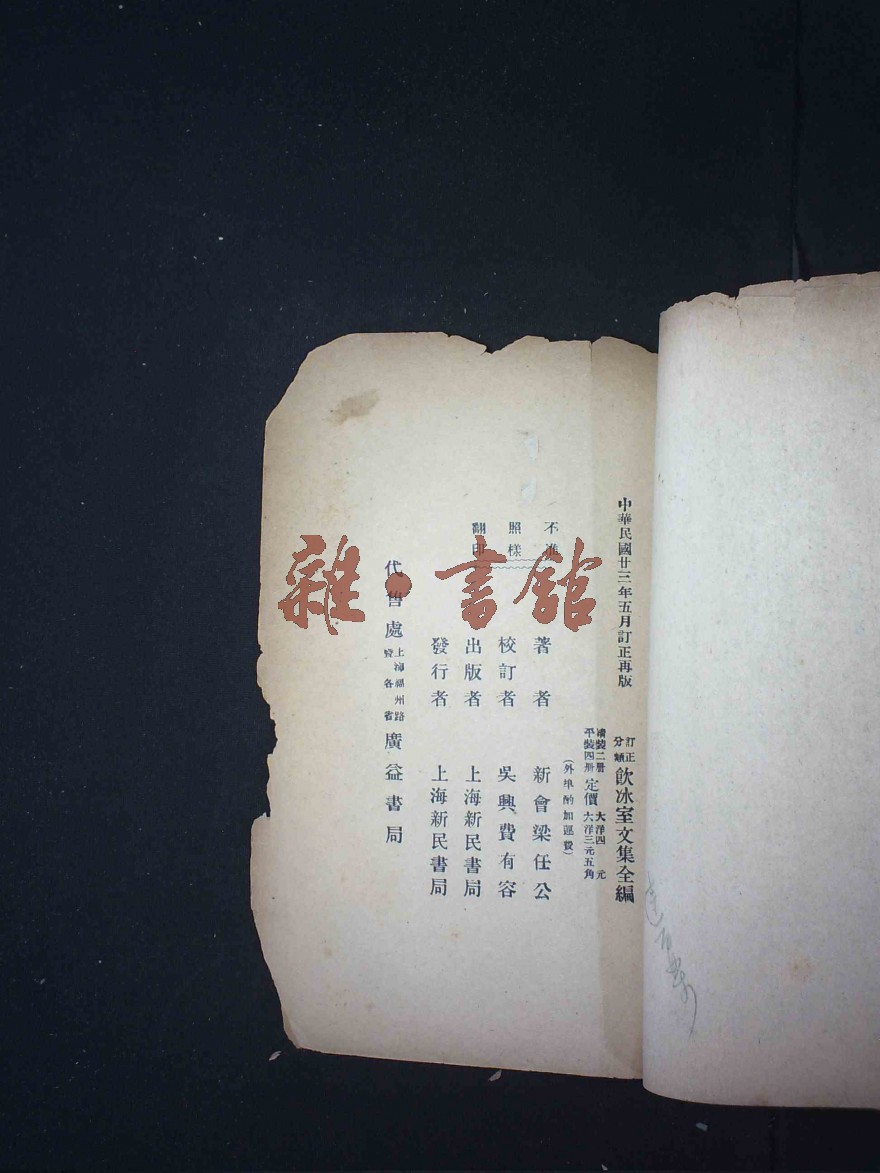 中華民國廿三年五月訂正再版
訂正
分類
飲冰室文集全編
精裝二册
平裝四册
定價
大洋四元
大洋三元五角
(外埠酌加運費)
不准
照樣
翻印
著者 新會梁任公
校訂者 吳興費有容
出版者 上海新民書局
發行者 上海新民書局
代售處
上海福州路
暨各省
廣益書局
雜·書館